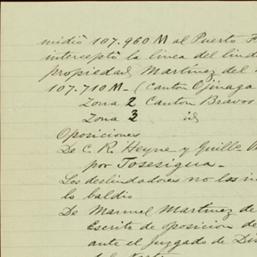 midió 107.960 M al Puerto
interceptó la linea del lind
propiedad, Martinez del
107.710 M - (Canton Ojinaga
Zona 2 Canton Bravos
Zona 3 id
Oposiciones
De C. R. Heyne y Guille
por Tosesigua.
Los deslindadores no las in
lo baldio
De Manuel Martinez de
Escrito de oposicion de
ante el juzgado de Dis